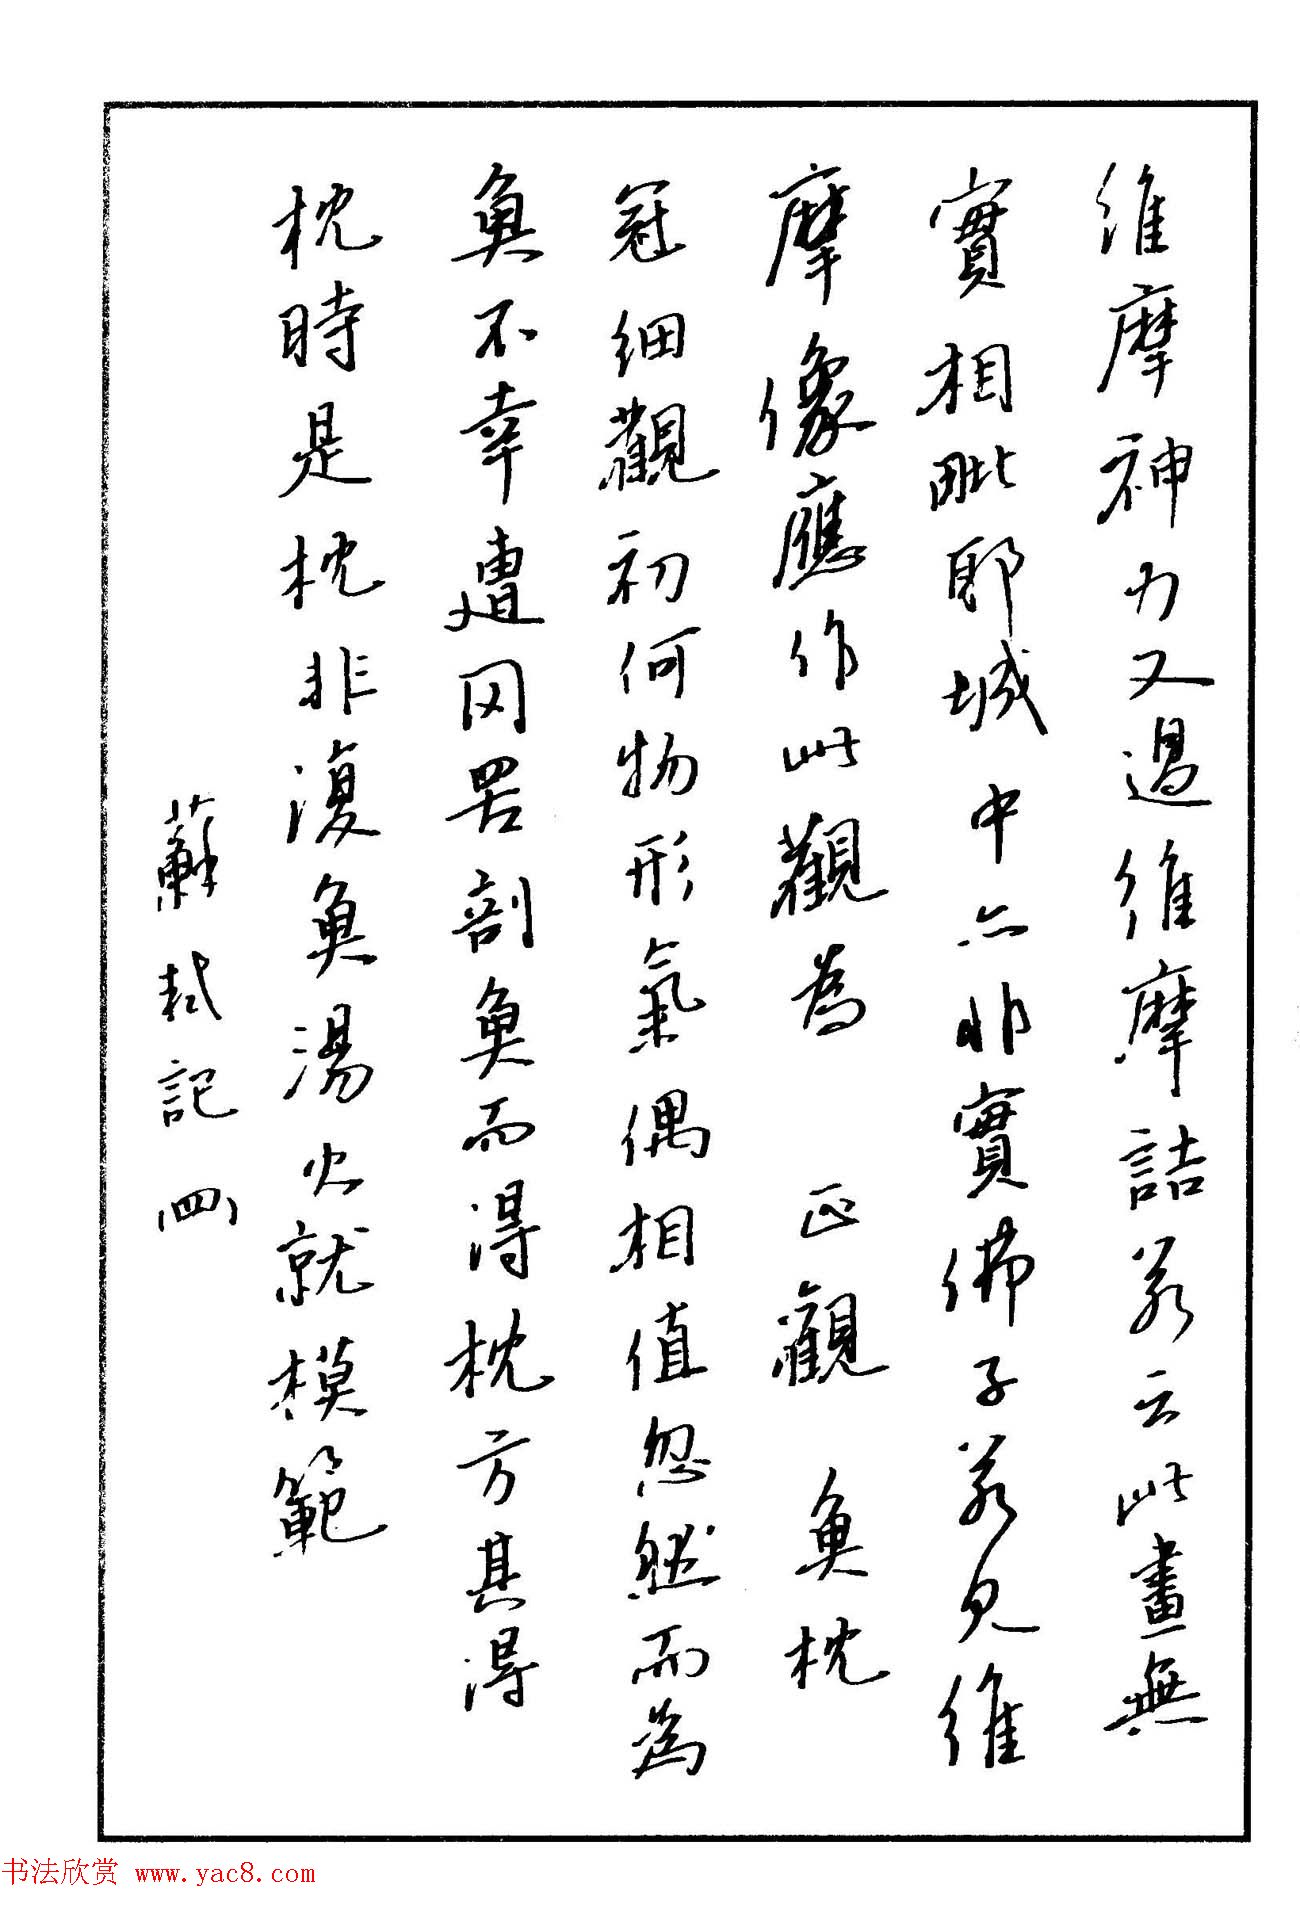 維摩神力又過維摩詰若云此畫無
實相毗耶城中亦非實佛子若見維
摩像應作此觀為 正觀 魚枕
冠細觀初何物形氣偶相值忽然而為
魚不幸遭網罟剖魚而得枕方其得
枕時是枕非復魚湯火就模範
蘇軾記 四
书法欣赏 www.yac8.com